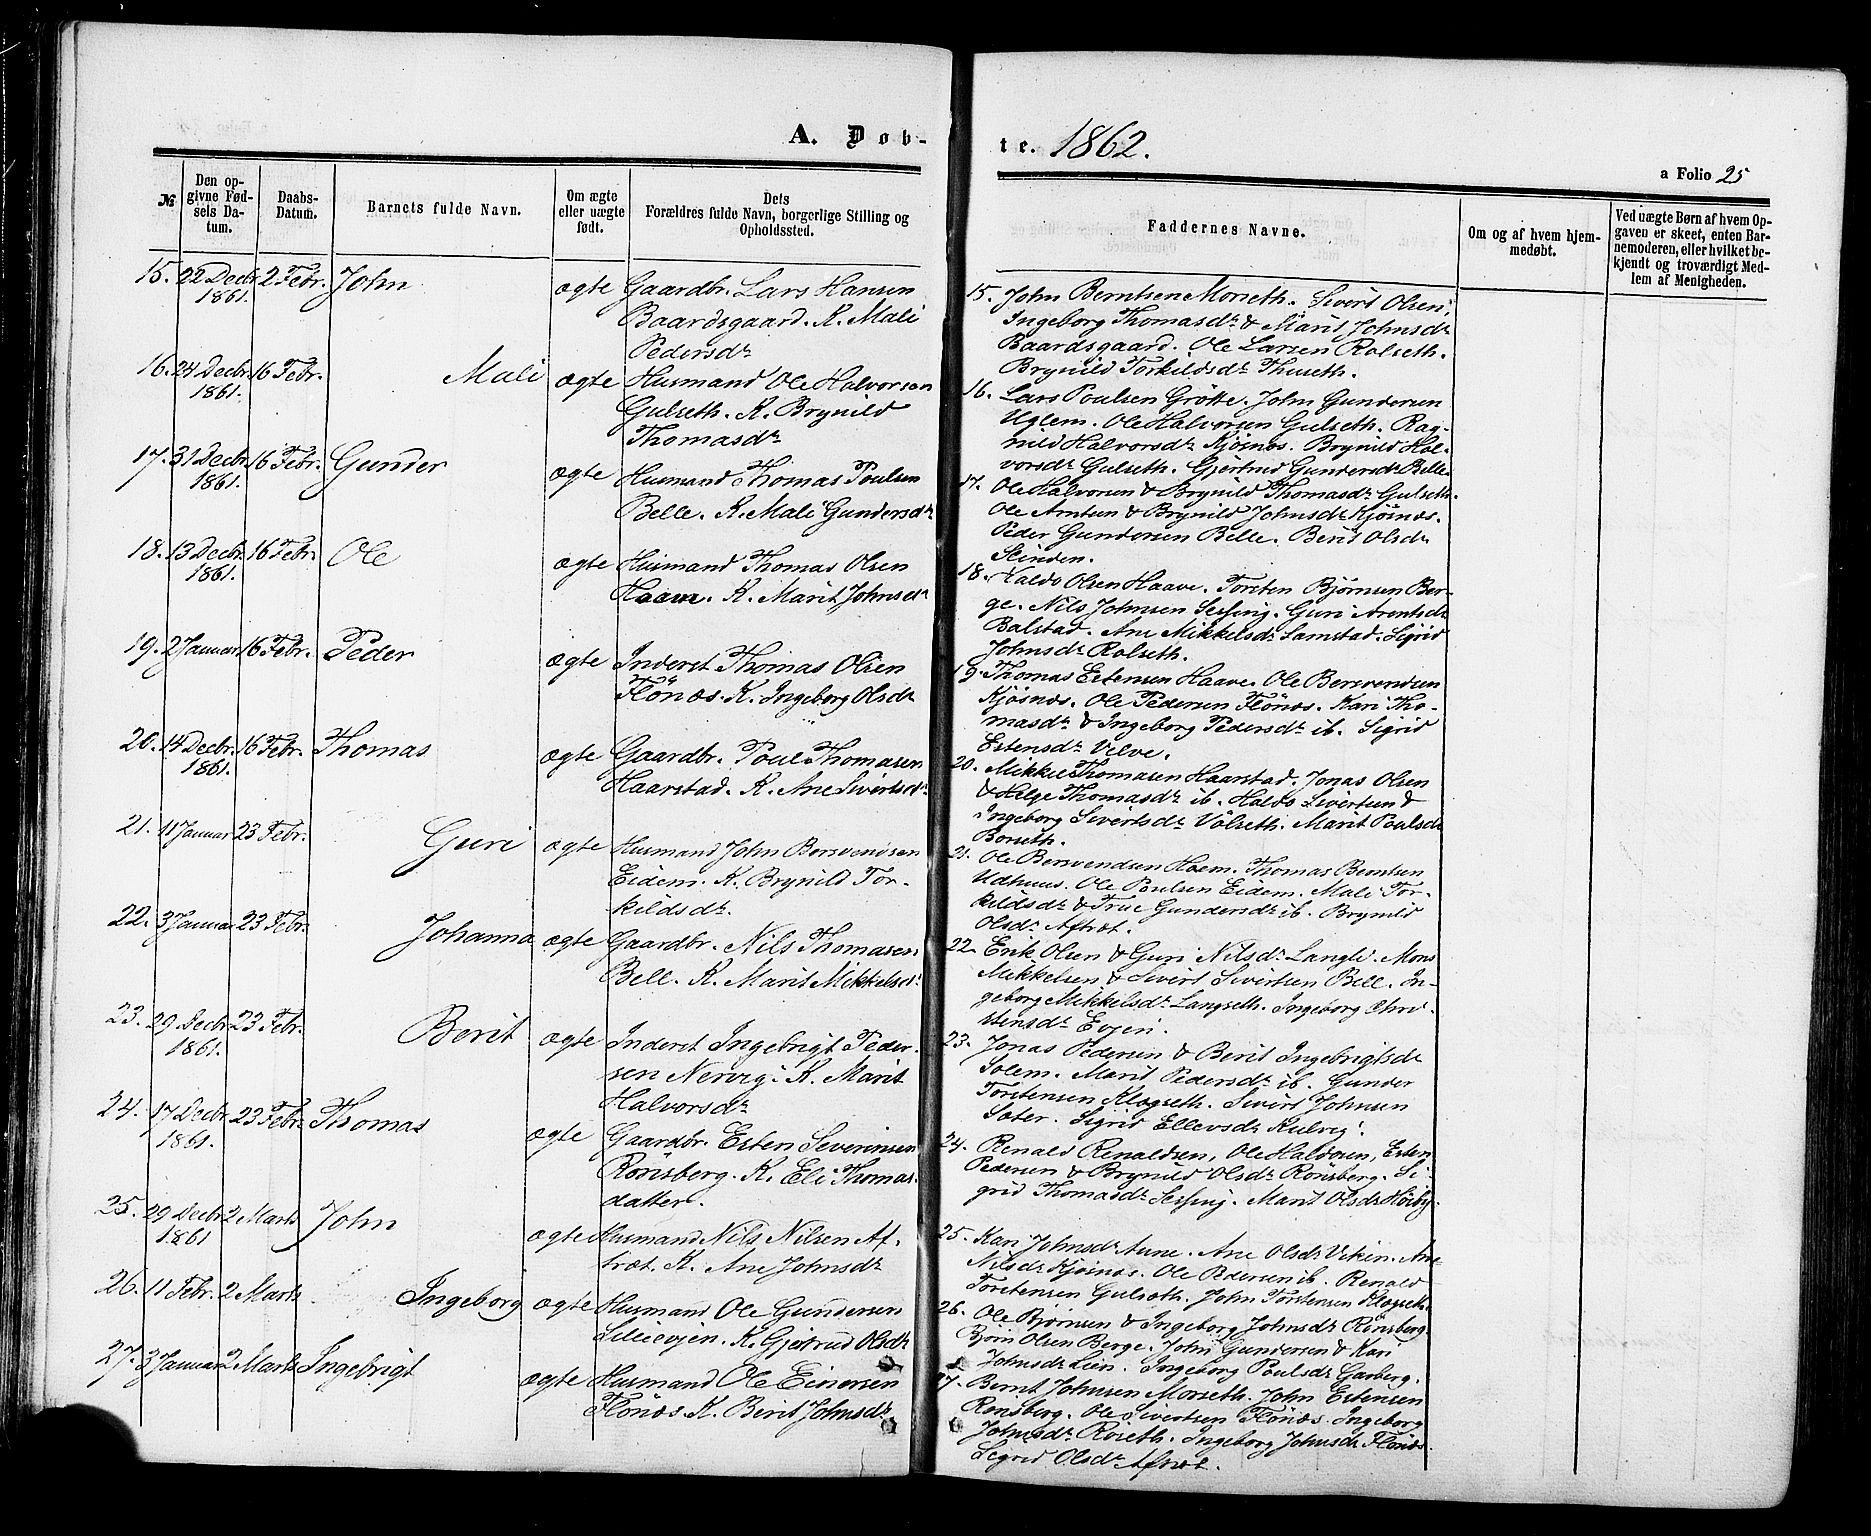 A. Døb-
te. 1862.
a Folio 25
№
Den op-
givne Fød-
sels Da-
tum.
Daabs-
Datum.
Barnets fulde Navn.
Om ægte
eller uægte
født.
Dets
Forældres fulde Navn, borgerlige Stilling og
Opholdssted.
Faddernes Navne.
Om og af hvem hjem-
medøbt.
Ved uægte Børn af hvem Op-
gaven er skeet, enten Bar-
nemoderen, eller hvilket be-
kjendt og troværdigt Med-
lem af Menigheden.
15. 22 Decbr. 2 Febr. John ægte Gaardbr. Lars Hansen
1861. Baardsgaard. K. Mali
Pedersdr
16. 24 Decbr. 16 Febr. Mali ægte Husmand Ole Halvorsen
1861. Gulseth. K. Brynild
Thomasdr
17. 31 Decbr. 16 Febr. Gunder ægte Husmand Thomas Poulsen
1861. Belle. K. Mali Gundersdr
18. 13 Decbr. 16 Febr. Ole ægte Husmand Thomas Olsen
1861. K. Marit Johnsdr
19. 2 Januar 16 Febr. Peder ægte Inderst Thomas Olsen
Flönæs. K. Ingeborg Olsdr
20. 14 Decbr. 16 Febr. Thomas ægte Gaardbr. Poul Thomasen
1861. Haarstad. K. Ane Sivertsdr
21. 11 Januar 23 Febr. Guri ægte Husmand John Bersvendsen
Eidem. K. Brynild Tor-
kildsdr.
22. 3 Januar 23 Febr. Johanna ægte Gaardbr. Nils Thomasen
Bell. K. Marit Mikkelsdr
23. 29 Decbr. 23 Febr. Berit ægte Inderst Ingebrigt Peder-
1861. sen Nervig. K. Marit
Halvorsdr
24. 17 Decbr. 23 Febr. Thomas ægte Gaardbr. Esten Severinsen
1861. Rönsberg. K. Eli Thomas-
datter.
25. 29 Decbr. 2 Marts John ægte Husmand Nils Nilsen Af-
1861 træt. K. Ane Johnsdr
26. 11 Febr. 2 Marts Ingeborg ægte Husmand Ole Gundersen
Lilleevjen. K. Gjertrud Olsdr
27. 3 Januar 2 Marts Ingebrigt ægte Husmand Ole Einersen
Flönæs K. Berit Johnsdr
15. John Berntsen Morseth. Sivert Olsen,
Ingeborg Thomasdr & Marit Johnsdr
Baardsgaard. Ole Larsen Rolseth.
Brynild Torkildsdr Thuseth.
16. Lars Poulsen Grötte. John Gundersen
Uglem. Ole Halvorsen Gulseth. Rag-
nild Halvorsdr Kjösnæs. Brynild Hal-
vorsdr Gulseth. Gjertrud Gundersdr Belle.
17. Ole Halvorsen & Brynild Thomasdr Gulseth.
Ole Arntsen & Brynild Johnsdr Kjösnæs.
Peder Gundersen Belle. Berit Olsdr
Slinden.
18. Haldo Olsen Haave. Torsten Bjørnsen Ber-
ge. Nils Johnsen Sessing. Guri Arentsdr
Balstad. Ane Mikkelsdr Samstad. Sigrid
Johnsdr Rolseth.
19. Thomas Estensen Haave. Ole Bersvendsen
Kjösnæs. Ole Pedersen Flönæs. Kari Tho-
masdr & Ingeborg Pedersdr ib. Sigrid
Estensdr Velve.
20. Mikkel Thomasen Haarstad. Jonas Olsen
& Helge Thomasdr ib. Haldo Sivertsen &
Ingeborg Sivertsdr Volseth. Marit Poulsdr
Borseth.
21. Ole Bersvendsen Hoem. Thomas Berntsen
Udhuus. Ole Poulsen Eidem. Mali Tor-
kildsdr & True Gundersdr ib. Brynild
Olsdr Aftræt.
22. Erik Olsen & Guri Nilsdr Langli. Mons
Mikkelsen & Sivert Sivertsen Bell. In-
geborg Mikkelsdr Langseth. Ingeborg Chri-
stensdr Evjen.
23. Jonas Pedersen & Berit Ingebrigtsdr
Solem. Marit Pedersdr ib. Gunder
Torstensen Klegseth. Sivert Johnsen
Sæter. Sigrid Ellevsdr Kulvig.
24. Renald Renaldsen, Ole Haldosen, Esten
Pedersen & Brynild Olsdr Rönsberg. Si-
grid Thomasdr Sessing. Marit Olsdr Höiby.
25. Kari Johnsdr Aune. Ane Olsdr Viken. Ane
Nilsdr Kjösnæs. Ole Pedersen ib. Renald
Torstensen Gulseth. John Torstensen Klegseth.
26. Ole Bjørnsen & Ingeborg Johnsdr Rönsberg.
Bjørn Olsen Berge. John Gundersen & Kari
Johnsdr Lien. Ingeborg Poulsdr Garberg.
27. Bernt Johnsen Morseth. John Estensen
Rönsberg. Ole Sivertsen Flönæs. Ingeborg
Johnsdr Roseth. Ingeborg Johnsdr Flönæs.
Sigrid Olsdr Aftræt.